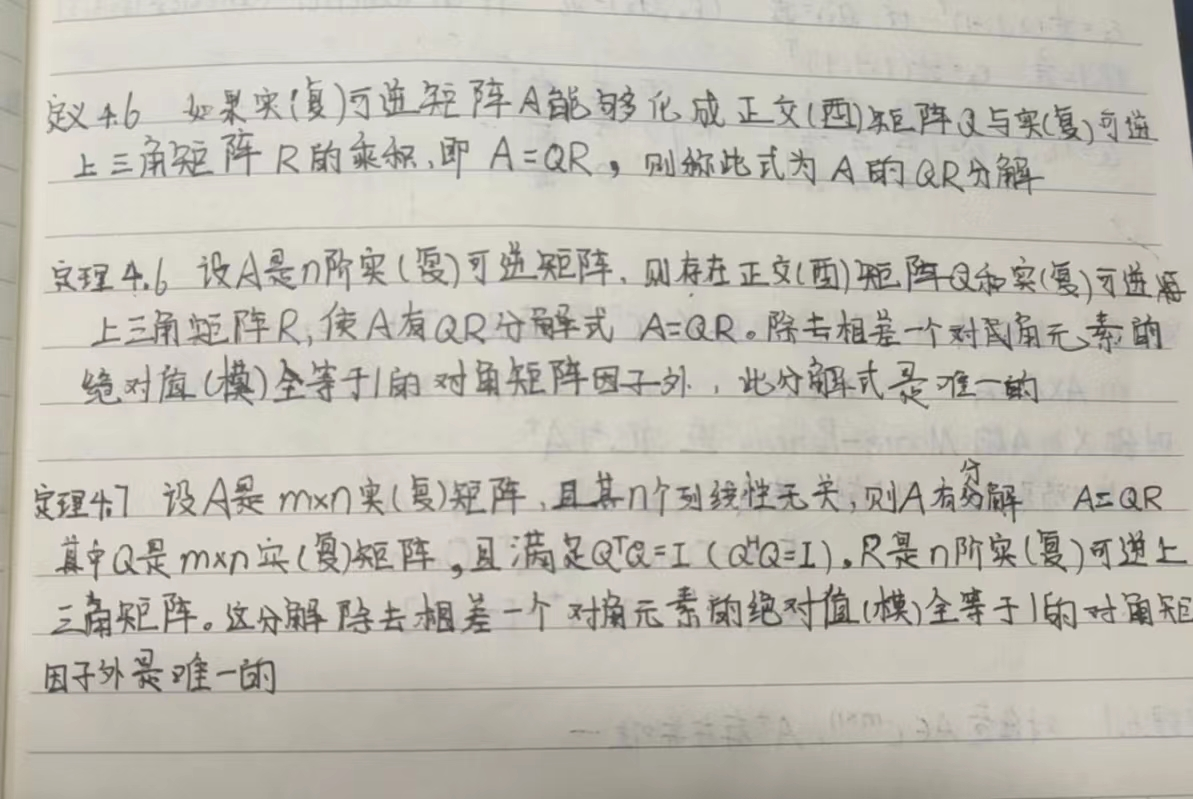 定义4.6 如果实(复)可逆矩阵A能够化成正交(酉)矩阵Q与实(复)可逆
上三角矩阵R的乘积,即 A=QR,则称此式为A的QR分解
定理4.6 设A是n阶实(复)可逆矩阵,则存在正交(酉)矩阵Q和实(复)可逆
上三角矩阵R,使A有QR分解式 A=QR。除去相差一个对角元素的
绝对值(模)全等于1的对角矩阵因子外,此分解式是唯一的
定理4.7 设A是m×n实(复)矩阵,且其n个列线性无关,则A有分解 A=QR
其中Q是m×n实(复)矩阵,且满足QᵀQ=I(QᴴQ=I),R是n阶实(复)可逆上
三角矩阵。这分解除去相差一个对角元素的绝对值(模)全等于1的对角矩
因子外是唯一的